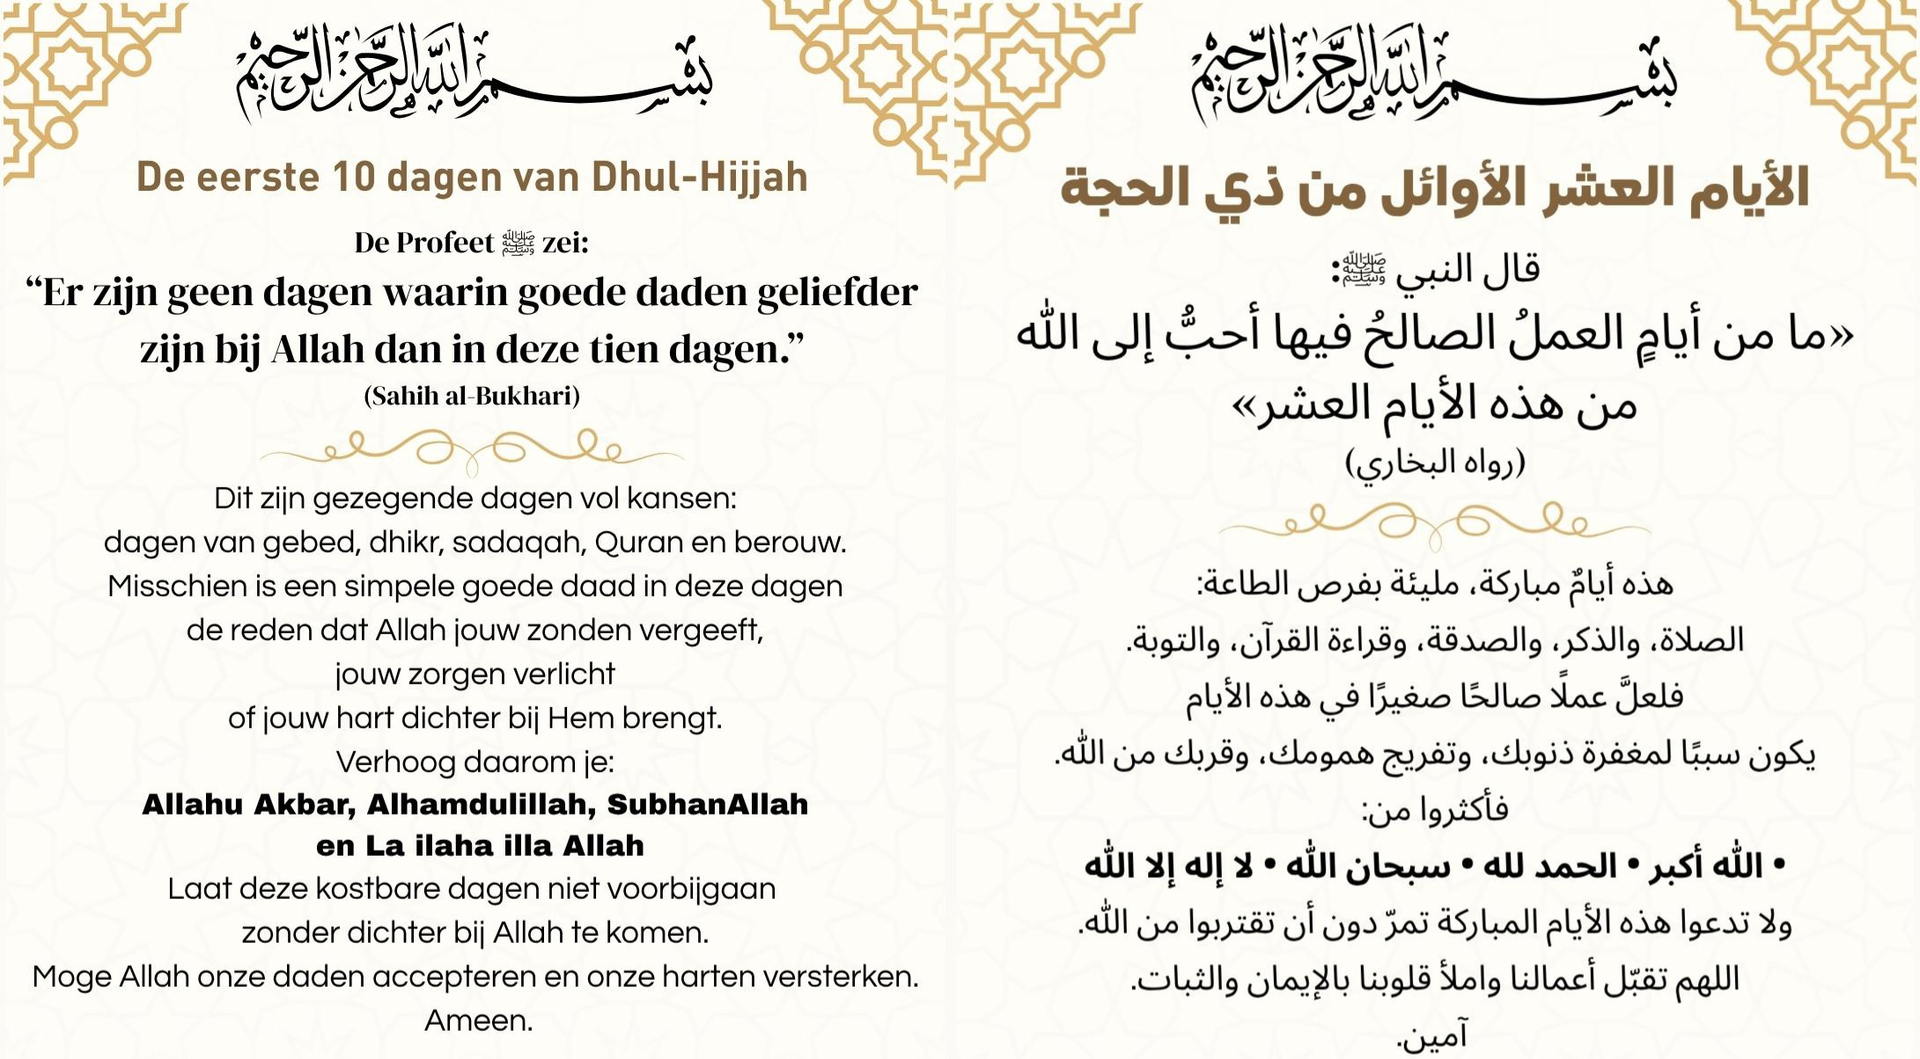 بسم الله الرحمن الرحيم
De eerste 10 dagen van Dhul-Hijjah
De Profeet ﷺ zei:
“Er zijn geen dagen waarin goede daden geliefder
zijn bij Allah dan in deze tien dagen.”
(Sahih al-Bukhari)
Dit zijn gezegende dagen vol kansen:
dagen van gebed, dhikr, sadaqah, Quran en berouw.
Misschien is een simpele goede daad in deze dagen
de reden dat Allah jouw zonden vergeeft,
jouw zorgen verlicht
of jouw hart dichter bij Hem brengt.
Verhoog daarom je:
Allahu Akbar, Alhamdulillah, SubhanAllah
en La ilaha illa Allah
Laat deze kostbare dagen niet voorbijgaan
zonder dichter bij Allah te komen.
Moge Allah onze daden accepteren en onze harten versterken.
Ameen.
بسم الله الرحمن الرحيم
الأيام العشر الأوائل من ذي الحجة
قال النبي ﷺ:
«ما من أيامٍ العملُ الصالحُ فيها أحبُّ إلى الله
من هذه الأيام العشر»
(رواه البخاري)
هذه أيامٌ مباركة، مليئة بفرص الطاعة:
الصلاة، والذكر، والصدقة، وقراءة القرآن، والتوبة.
فلعلَّ عملًا صالحًا صغيرًا في هذه الأيام
يكون سببًا لمغفرة ذنوبك، وتفريج همومك، وقربك من الله.
فأكثروا من:
• الله أكبر • الحمد لله • سبحان الله • لا إله إلا الله
ولا تدعوا هذه الأيام المباركة تمرّ دون أن تقتربوا من الله.
اللهم تقبّل أعمالنا واملأ قلوبنا بالإيمان والثبات.
آمين.